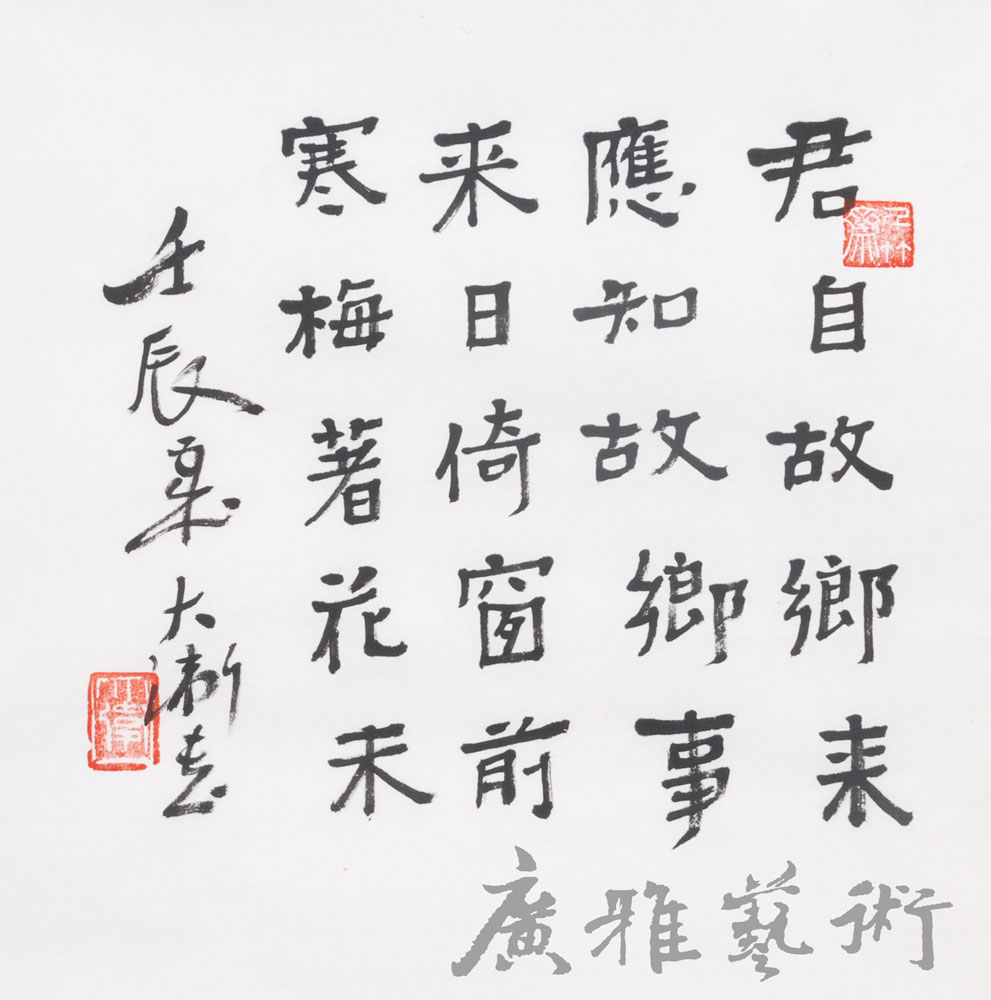 君自故鄉来
應知故鄉事
来日倚窗前
寒梅著花未
壬辰夏大衛書
廣雅藝術